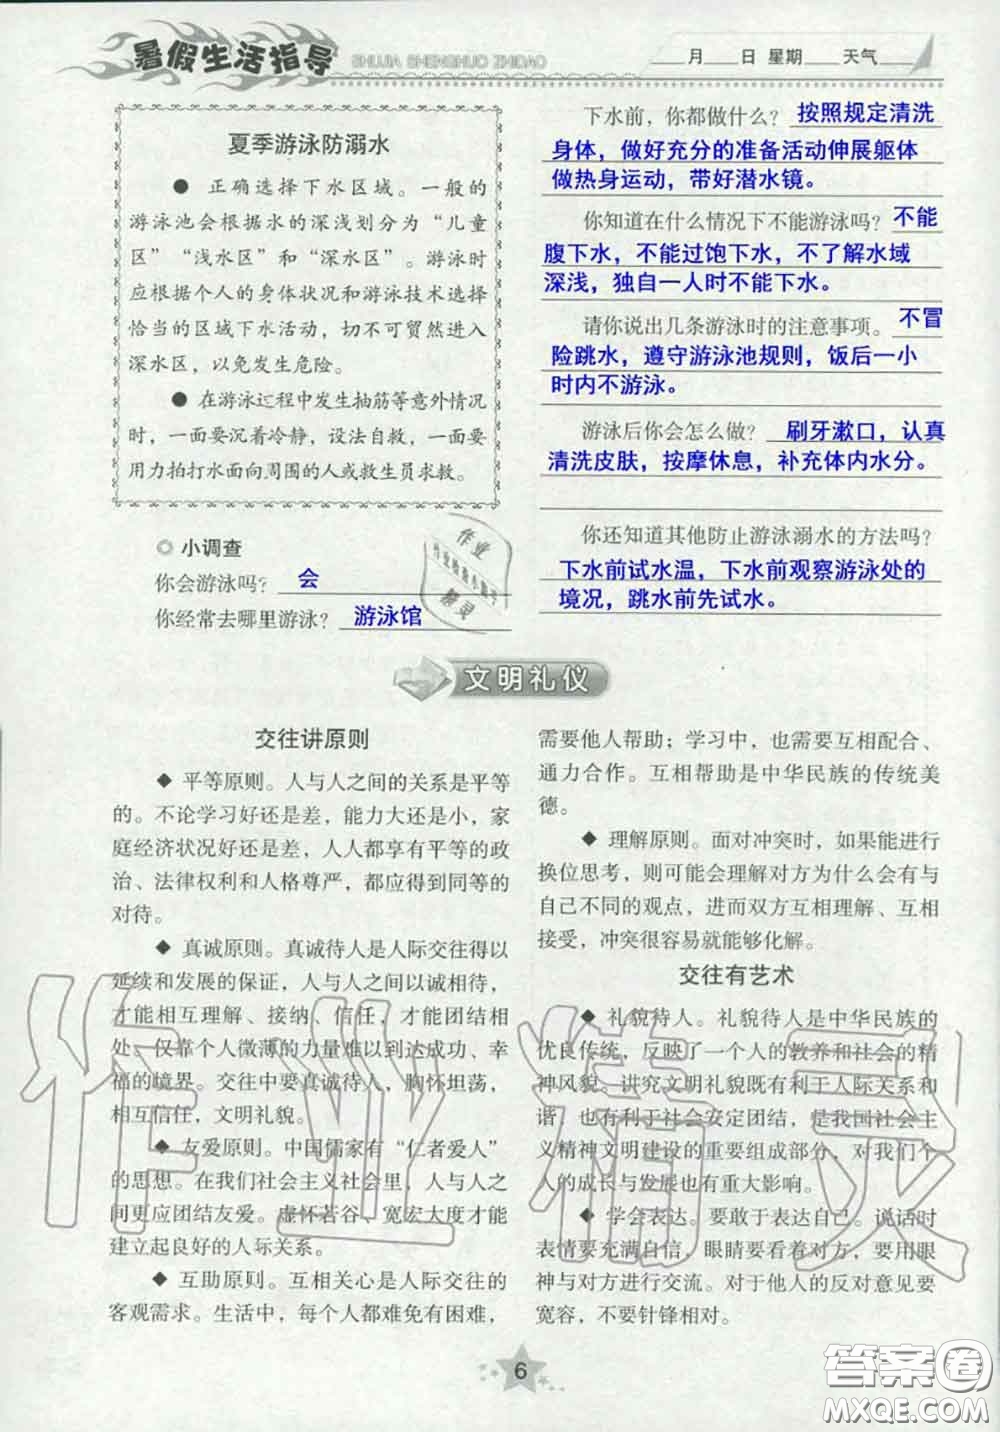 暑假生活指导
SHUJIA SHENGHUO ZHIDAO
月 日 星期 天气
夏季游泳防溺水
● 正确选择下水区域。一般的
游泳池会根据水的深浅划分为“儿童
区”“浅水区”和“深水区”。游泳时
应根据个人的身体状况和游泳技术选择
恰当的区域下水活动，切不可贸然进入
深水区，以免发生危险。
● 在游泳过程中发生抽筋等意外情况
时，一面要沉着冷静，设法自救，一面要
用力拍打水面向周围的人或救生员求救。
◎ 小调查
你会游泳吗？ 会
你经常去哪里游泳？ 游泳馆
下水前，你都做什么？ 按照规定清洗
身体，做好充分的准备活动伸展躯体
做热身运动，带好潜水镜。
你知道在什么情况下不能游泳吗？ 不能
腹下水，不能过饱下水，不了解水域
深浅，独自一人时不能下水。
请你说出几条游泳时的注意事项。 不冒
险跳水，遵守游泳池规则，饭后一小
时内不游泳。
游泳后你会怎么做？ 刷牙漱口，认真
清洗皮肤，按摩休息，补充体内水分。
你还知道其他防止游泳溺水的方法吗？
下水前试水温，下水前观察游泳处的
境况，跳水前先试水。
作业
精灵
文明礼仪
交往讲原则
◆ 平等原则。人与人之间的关系是平等
的。不论学习好还是差，能力大还是小，家
庭经济状况好还是差，人人都享有平等的政
治、法律权利和人格尊严，都应得到同等的
对待。
◆ 真诚原则。真诚待人是人际交往得以
延续和发展的保证，人与人之间以诚相待，
才能相互理解、接纳、信任，才能团结相
处。仅靠个人微薄的力量难以到达成功、幸
福的境界。交往中要真诚待人，胸怀坦荡，
相互信任，文明礼貌。
◆ 友爱原则。中国儒家有“仁者爱人”
的思想。在我们社会主义社会里，人与人之
间更应团结友爱。虚怀若谷、宽宏大度才能
建立起良好的人际关系。
◆ 互助原则。互相关心是人际交往的
客观需求。生活中，每个人都难免有困难，
需要他人帮助；学习中，也需要互相配合、
通力合作。互相帮助是中华民族的传统美
德。
◆ 理解原则。面对冲突时，如果能进行
换位思考，则可能会理解对方为什么会有与
自己不同的观点，进而双方互相理解、互相
接受，冲突很容易就能够化解。
交往有艺术
◆ 礼貌待人。礼貌待人是中华民族的
优良传统，反映了一个人的教养和社会的精
神风貌。讲究文明礼貌既有利于人际关系和
谐，也有利于社会安定团结，是我国社会主
义精神文明建设的重要组成部分，对我们个
人的成长与发展也有重大影响。
◆ 学会表达。要敢于表达自己。说话时
表情要充满自信，眼睛要看着对方，要用眼
神与对方进行交流。对于他人的反对意见要
宽容，不要针锋相对。
作业精灵
6
答案圈
MXQE.COM